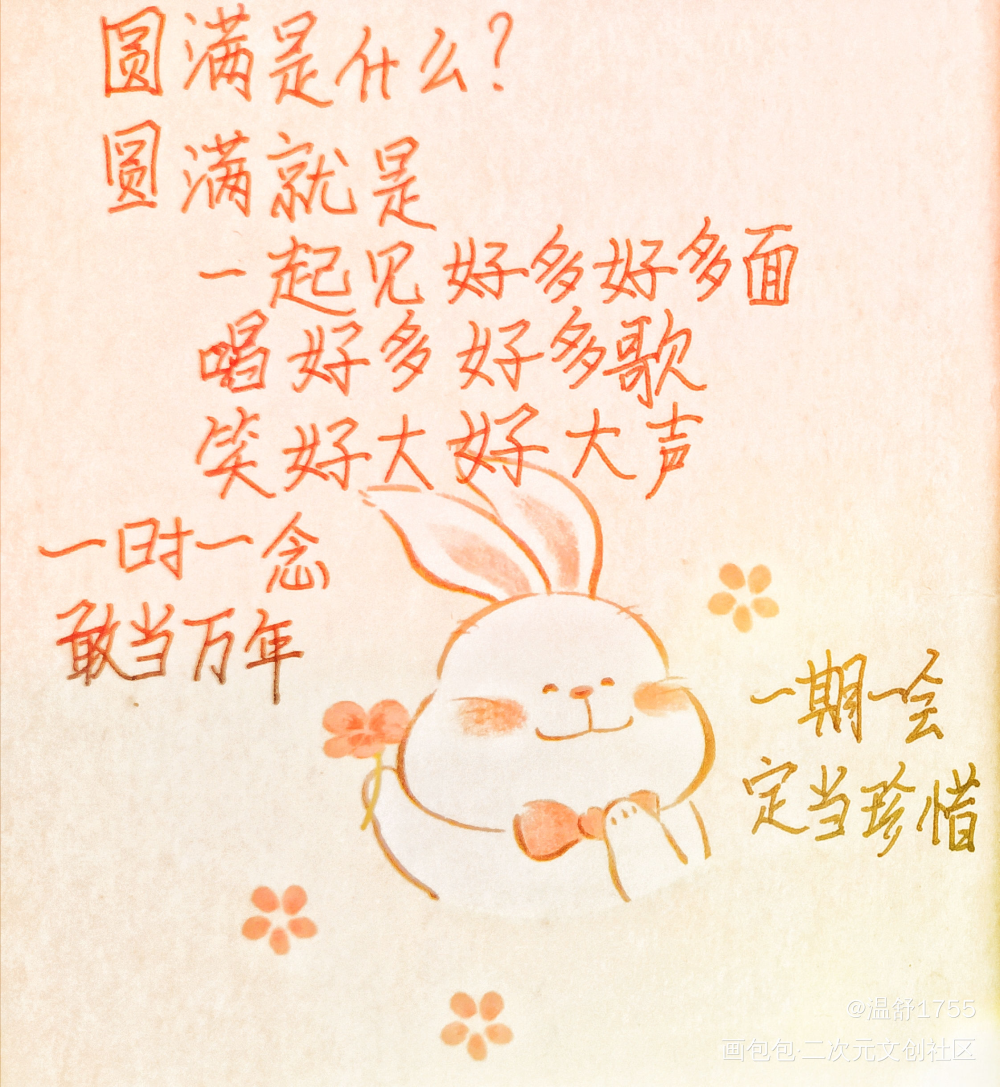 圆满是什么?
圆满就是
一起见好多好多面
唱好多好多歌
笑好大好大声
一时一念
敢当万年
一期一会
定当珍惜
@温舒1755
画包包·二次元文创社区